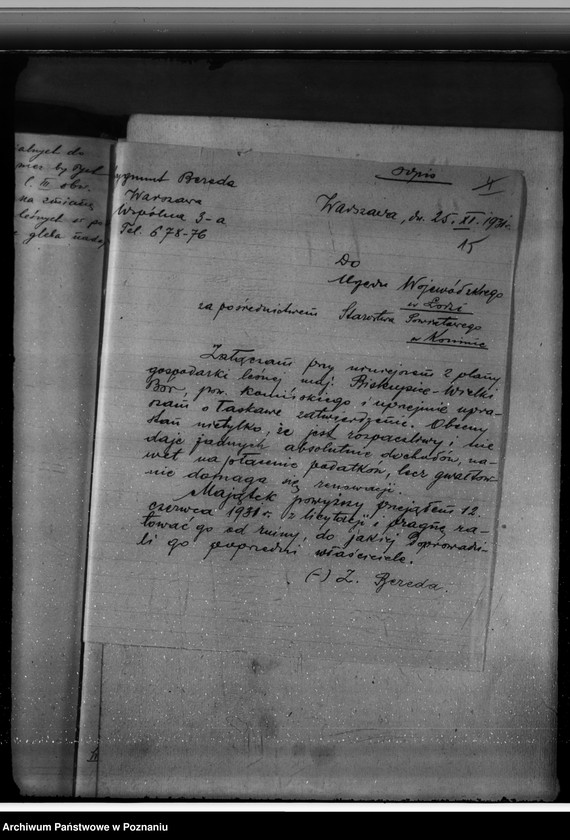 Odpis
4
Zygmunt Bereda
Warszawa
Wspólna 3-a
Tel. 678-76
Warszawa, dn. 25. XI. 1931 r.
15
Do
Urzędu Wojewódzkiego
w Łodzi
za pośrednictwem Starostwa Powiatowego
w Koninie
Załączam przy niniejszem 2 plany
gospodarki leśnej maj. Biskupie-Wielki
Bór, pow. Konińskiego i uprzejmie upra-
szam o łaskawe zatwierdzenie. Obecny
stan nietylko, że jest rozpaczliwy i nie
daje żadnych absolutnie dochodów, na-
wet na płacenie podatków, lecz gwałtow-
nie domaga się renowacji.
Majątek powyższy przejąłem 12
czerwca 1931 r. z licytacji i pragnę ra-
tować go od ruiny, do jakiej doprowadzi-
li go poprzedni właściciele.
(-) Z. Bereda.
l. III obr.
na zmianę
gleba nada
Archiwum Państwowe w Poznaniu